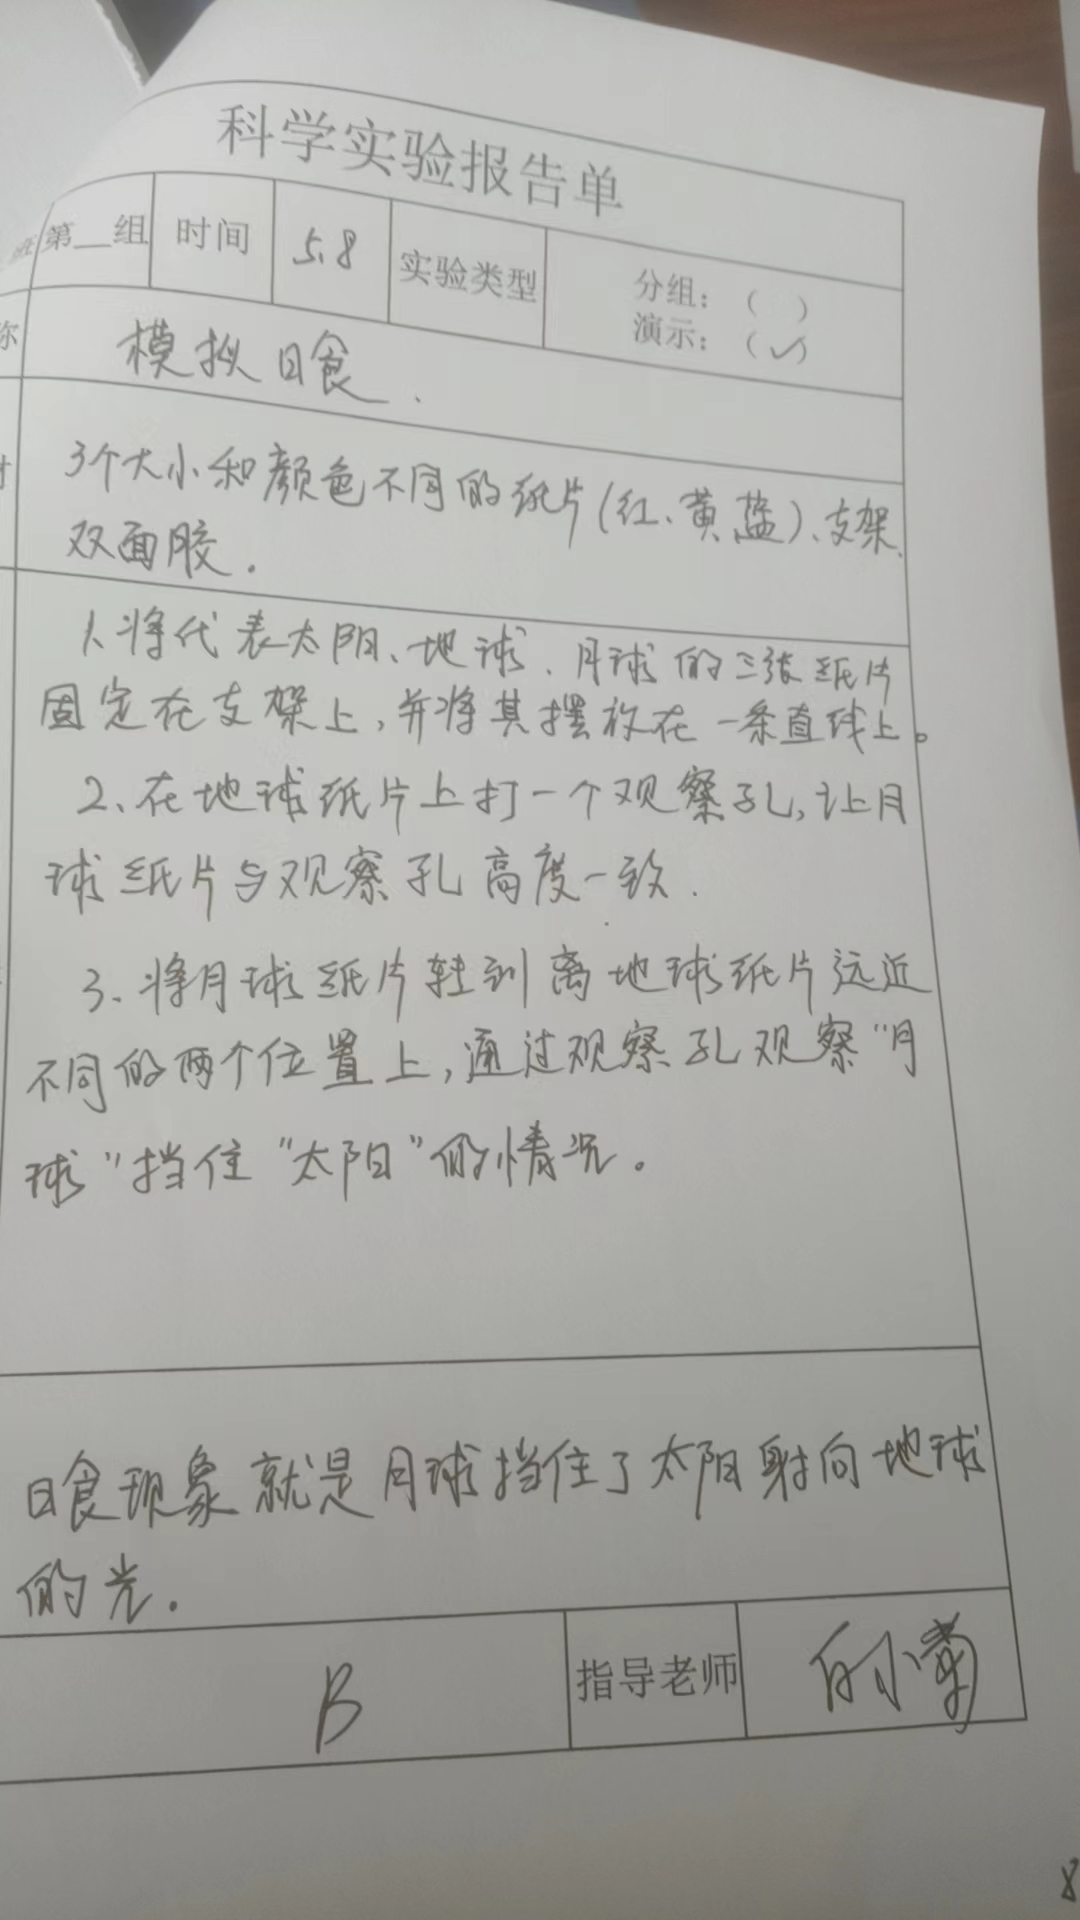 科学实验报告单
班 第__组 时间 5.8 实验类型 分组：（ ）
演示：（✓）
称 模拟日食.
3个大小和颜色不同的纸片(红、黄、蓝)、支架、
双面胶.
1、将代表太阳、地球、月球的三张纸片
固定在支架上,并将其摆放在一条直线上。
2、在地球纸片上打一个观察孔,让月
球纸片与观察孔高度一致.
3、将月球纸片转到离地球纸片远近
不同的两个位置上,通过观察孔观察"月
球"挡住"太阳"的情况。
日食现象就是月球挡住了太阳射向地球
的光.
B 指导老师
8